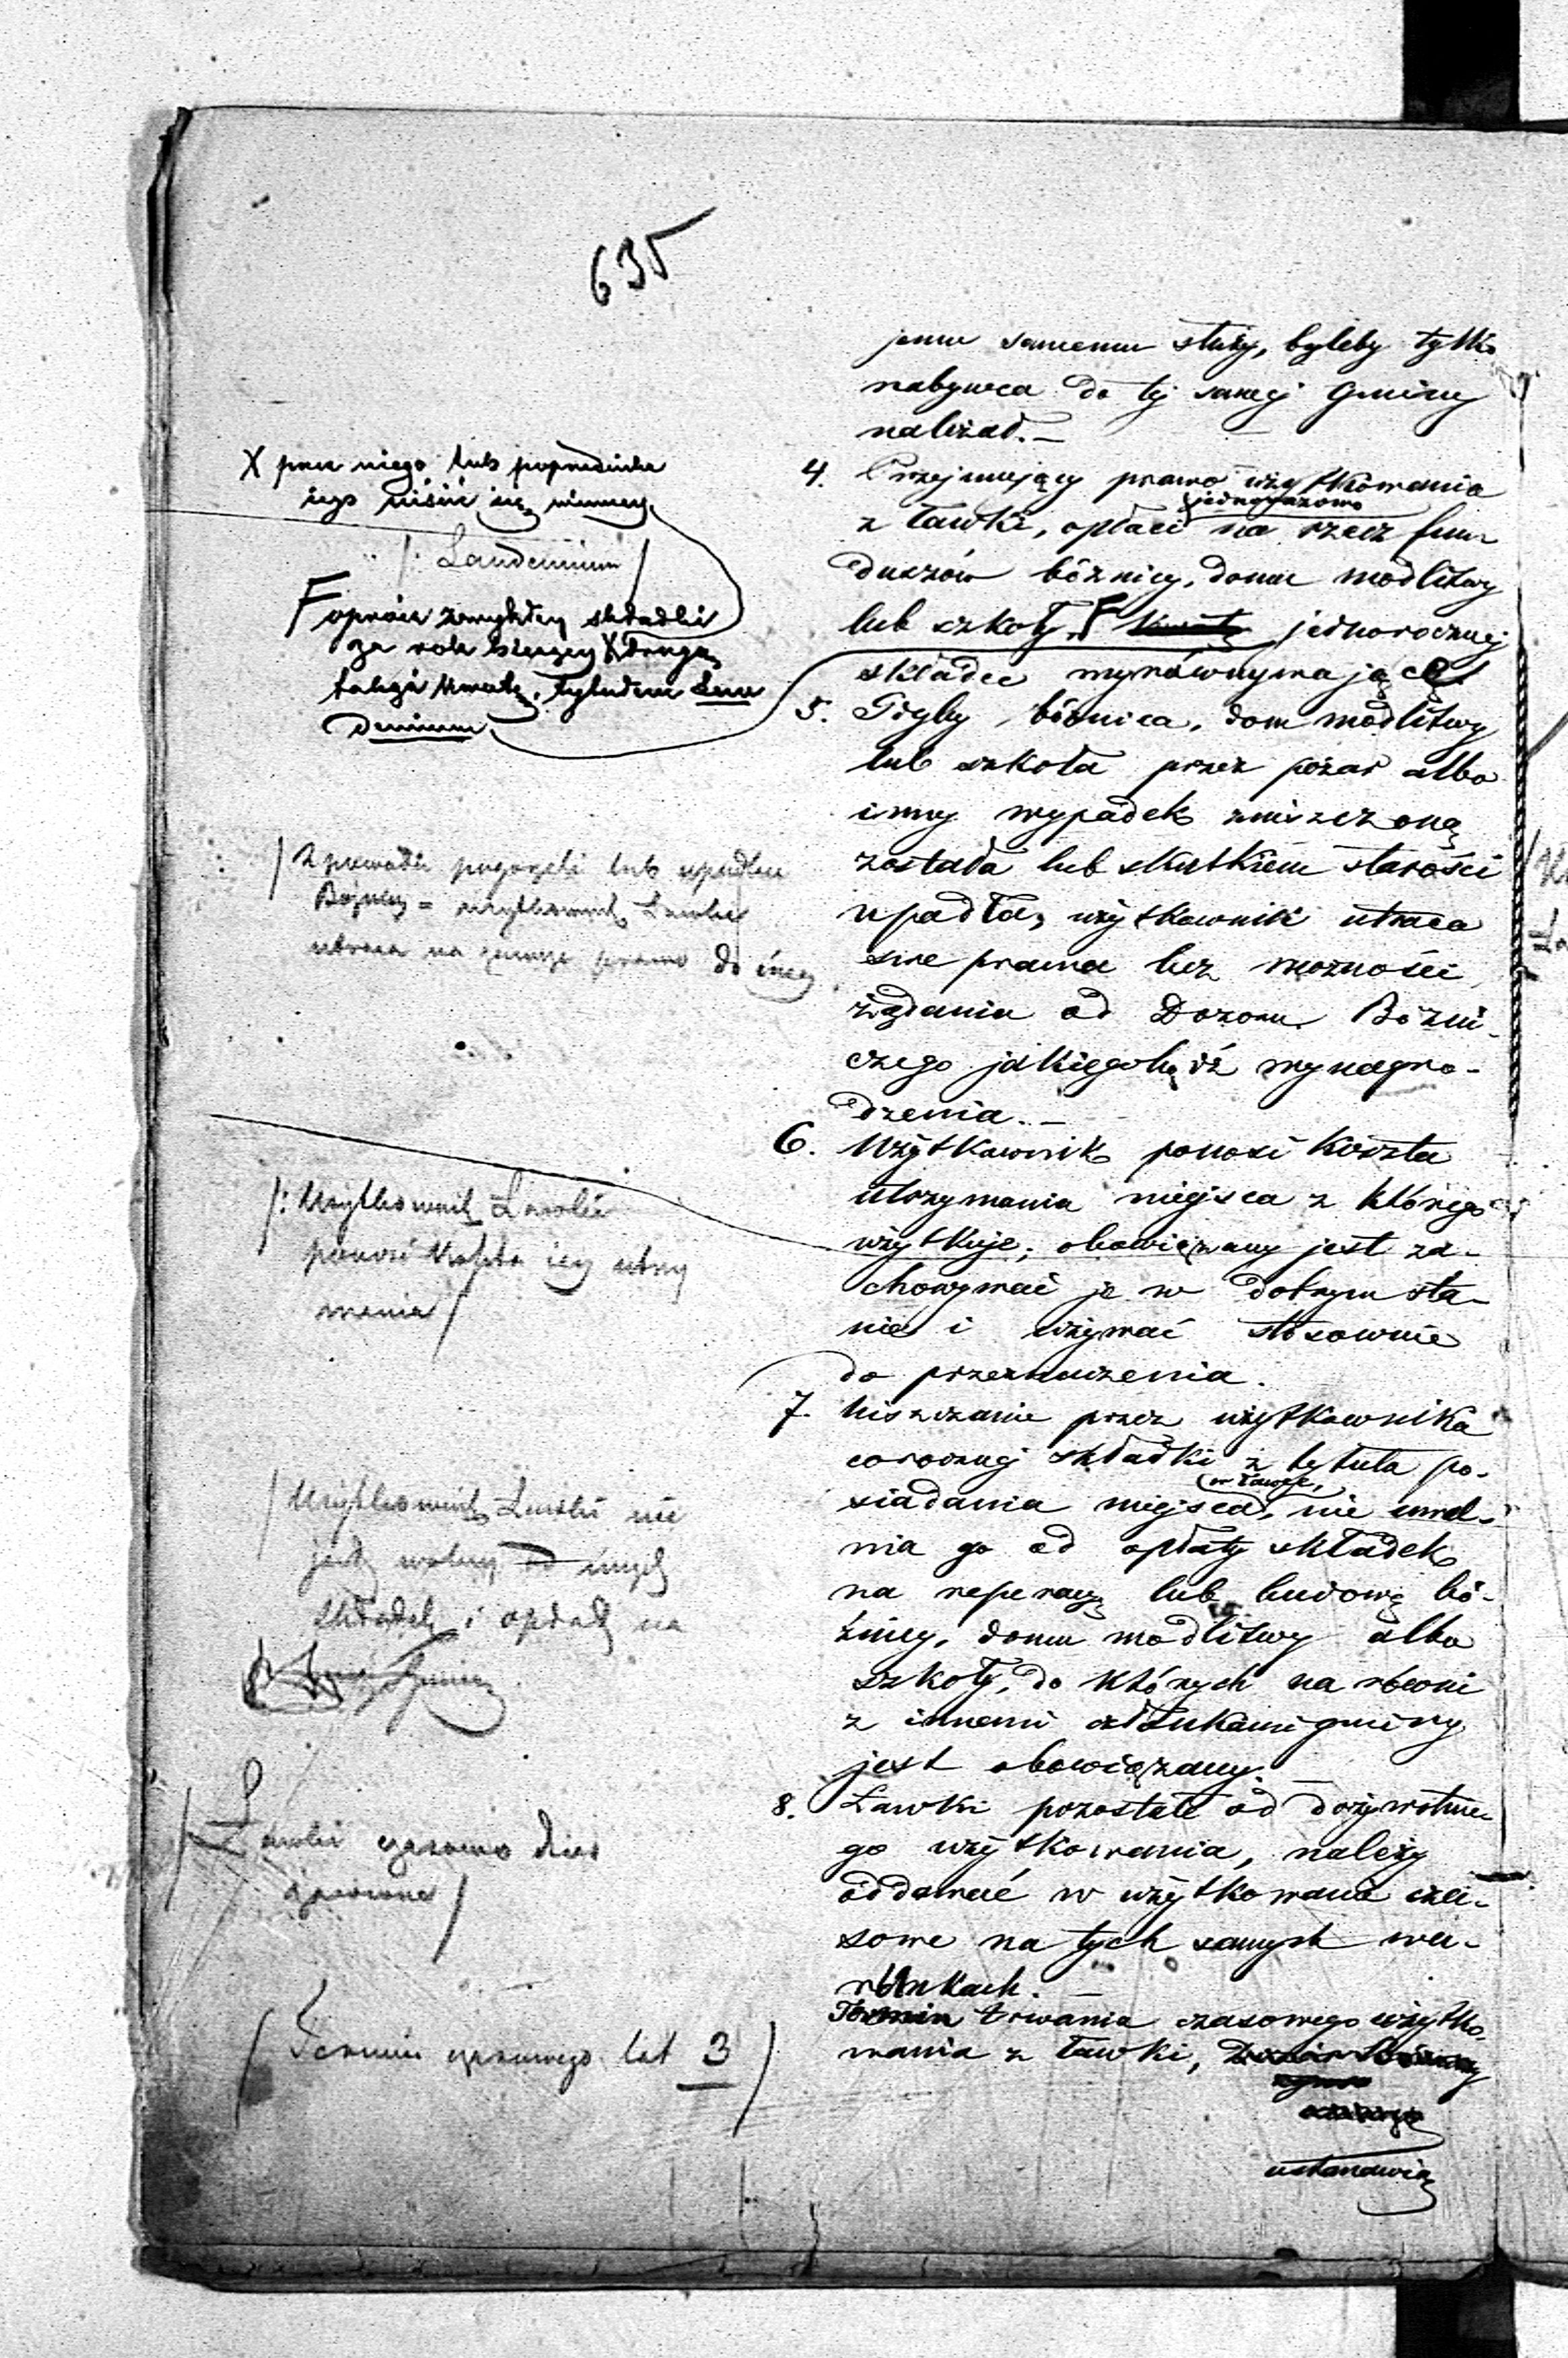 635
jemu samemu służy, byleby tylko
nabywca do tej samej Gminy
należał.—
4. Przejmujący prawo użytkowania
jednorazowo
z ławki, opłaci na rzecz fun
duszów bóżnicy, domu modlitwy
lub szkoły, F kwotę jednorocznej
składce wyrównywającą
5. Gdyby bóżnica, dom modlitwy
lub szkoła przez pożar albo
inny wypadek zniszczoną
została lub skutkiem starości
upadła, użytkownik utraca
swe prawa bez możności
żądania od Dozoru Bóżni-
czego jakiegobądź wynagro-
dzenia.—
6. Użytkownik ponosi koszta
utrzymania miejsca z którego
użytkuje; obowiązany jest za-
chowywać je w dobrym sta-
nie i używać stosownie
do przeznaczenia.
7. Uiszczanie przez użytkownika
corocznej składki z tytułu po-
w ławce,
siadania miejsca, nie uwal-
nia go od opłaty składek
na reperacyą lub budowę bó-
żnicy, domu modlitwy albo
szkoły, do których na równi
z innemi członkami gminy
jest obowiązany.—
8. Ławki pozostałe od dożywotne-
go użytkowania, należy
oddawać w użytkowanie cza-
sowe na tych samych wa-
runkach.—
Termin trwania czasowego użytko-
wania z ławki,
ustanawia
X przez niego lub poprzednika
iego uiścić się winney
/: Laudemium /
F oprócz zwykłey składki
za rok bieżący X drugą
takąż kwotę, tytułem Lau
demium
/ Z powodu pogorzeli lub upadku
Bożnicy = użytkownik Ławki
utraca na zawsze prawo do iney
/: Użytkownik Ławki
ponosi koszta iey utrzy
mania /
/ Użytkownik Ławki nie
jest wolny od innych
składek i opłat na
/ Ławki czasowo
/ Termin czasowego lat 3 /